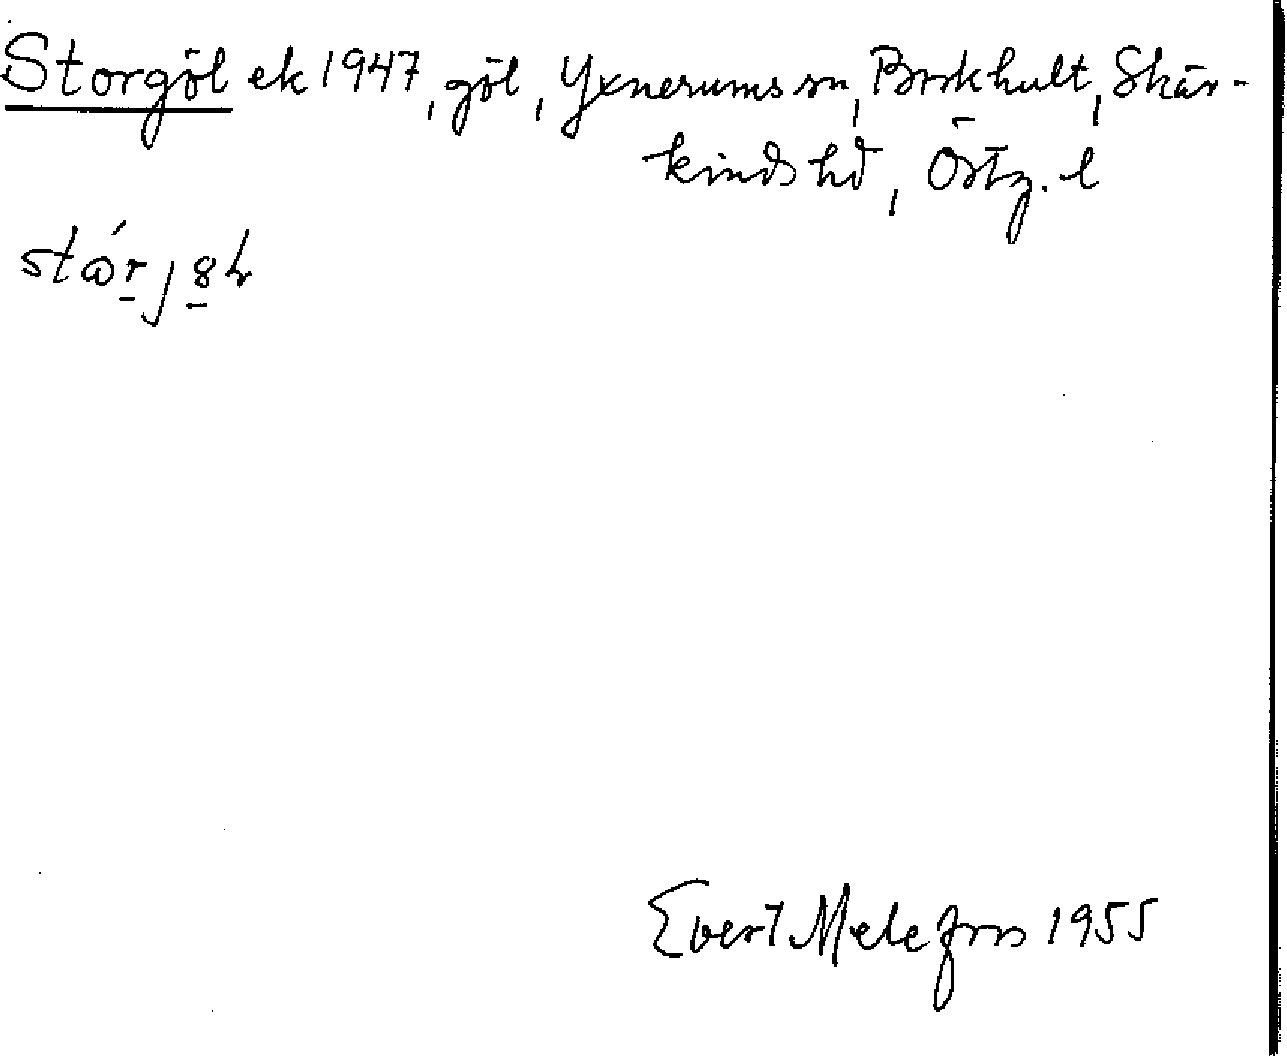 Storgöl ek 1947, göl, Yxnerums sn, Borkhult, Skär-
kinds hd, Östg. l
Evert Melefors 1955